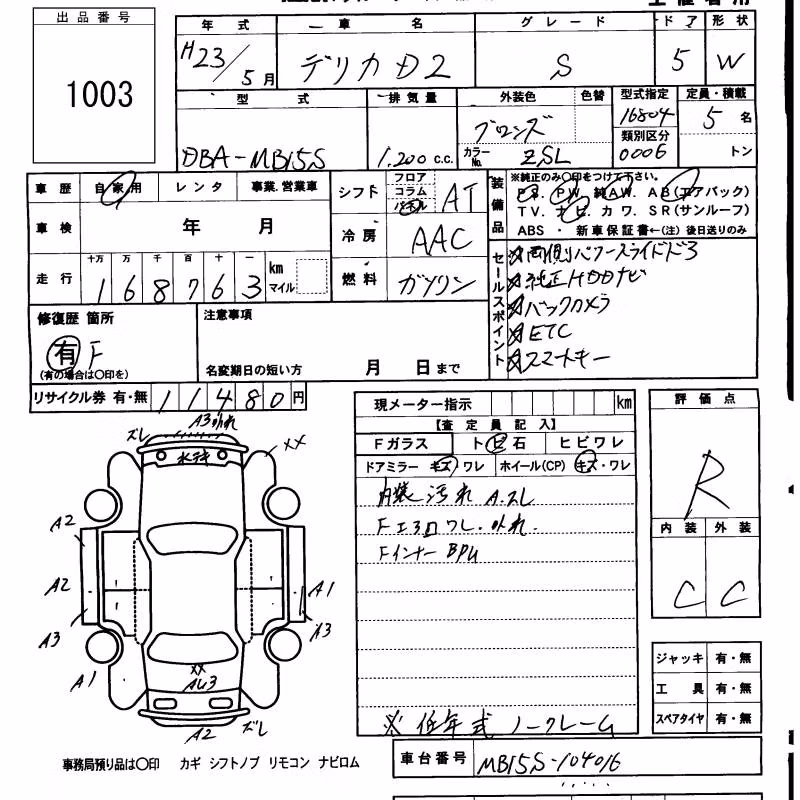 出品番号
1003
年式 車名 グレード ドア 形状
H23/5月 デリカD2 S 5 W
型式 排気量 外装色 色替 型式指定 定員・積載
DBA-MB15S 1.200 C.C. ブロンズ 16804 5名
カラーNo. ZSL 類別区分 0006 トン
車歴 自家用 レンタ 事業.営業車
シフト フロア コラム パネル AT
装備品 ※純正のみ〇印をつけて下さい。
P.S. P.W. 純AW. AB(エアバック)
TV. ナビ. カワ. SR(サンルーフ)
ABS ・ 新車保証書←(注)後日送りのみ
車検 年 月
冷房 AAC
走行 十万 万 千 百 十 一
1 6 8 7 6 3 km マイル
燃料 ガソリン
セールスポイント
両側パワースライドドア
純正HDDナビ
バックカメラ
ETC
スマートキー
修復歴 箇所
有 F
(有の場合は〇印を)
注意事項
名変期日の短い方 月 日まで
リサイクル券 有・無 1 1 4 8 0 円
現メーター指示 km
【査定員記入】
Fガラス トビ石 ヒビワレ
ドアミラー キズ・ワレ ホイール(CP) キズ・ワレ
内装汚れ A.スレ
Fエプロワレ.外れ.
Fインナー BPU
※ 低年式 ノークレーム
評価点
R
内装 外装
C C
ズレ A3外れ XX
水テキ
A2
A2 A1
A3 A3
A1
XX
AU3
A2 ズレ
ジャッキ 有・無
工具 有・無
スペアタイヤ 有・無
事務局預り品は〇印 カギ シフトノブ リモコン ナビロム
車台番号 MB15S-104016